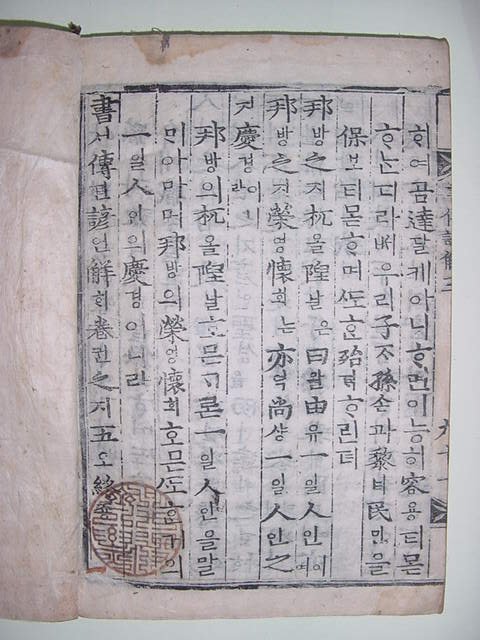 ᄒᆞ여곰達달케아니ᄒᆞ면이能능히容용티몯
ᄒᆞᄂᆞᆫ디라ᄡᅥ우리子ᄌᆞ孫손과黎려民민을
保보티몯ᄒᆞ며ᄯᅩᄒᆞᆫ殆ᄐᆡᄒᆞ린뎌
邦방之지杌올隉날은曰왈由유一일人인이며
邦방之지榮영懷회ᄂᆞᆫ亦역尚샹一일人인之
지慶경이라
邦방의杌올隉날홈은ᄀᆞᆯ온一일人인을말
邦방의榮영懷회홈은ᄯᅩᄒᆞᆫ거의
一일人인의慶경이니라
書셔傳뎐諺언解ᄒᆡ卷권之지五오終죵